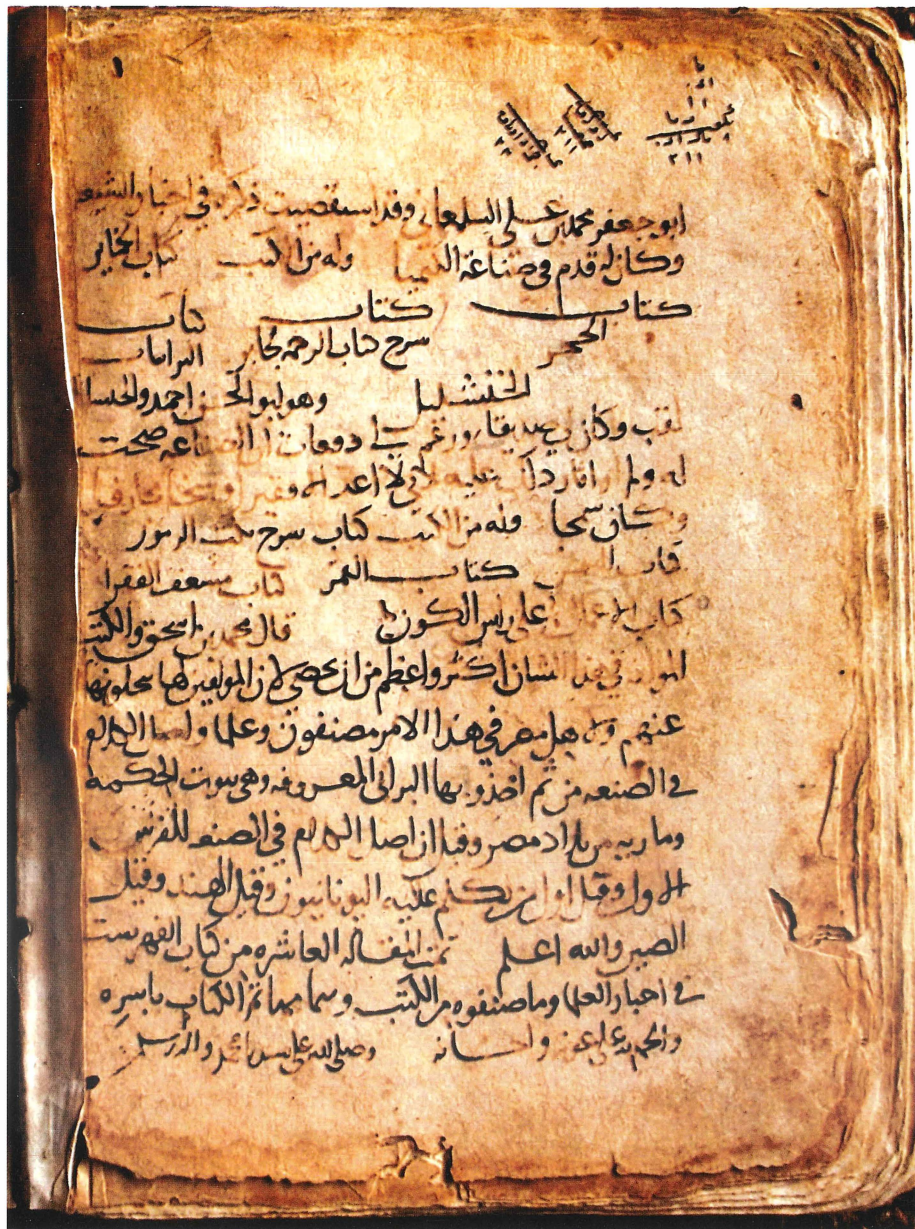 ابو جعفر محمد بن علي الشلمغاني وقد استقصيت ذكره في اخبار الشيعه
وكان له قدم في صناعة الكيميا وله من الكتب كتاب الخماير
كتاب كتاب كتاب
الحجر شرح كتاب الرحمه لجابر البرانيات
الخنشليل وهو ابو الحسن احمد والخنشليل
لقب وكان لي صديقا وزعم لي دفعات ان الصناعه صحت
له ولم ار اثار ذلك عليه لاني لا اعد انه فقيرا
وكان سمجا وله من الكتب كتاب شرح نكت الرموز
كتاب كتاب القمر كتاب مسعف الفقرا
كتاب الاعمال على راس الكون قال محمد بن اسحق والكتب
المولفه في هذا الشان اكثر واعظم من ان تحصى لان المولفين لها تنحلونها
عنهم ومن اهل مصر في هذا الامر مصنفون وعلما واصل الكلام
في الصنعه من ثم اخذ وبها البرابي المعروفه وهي بيوت الحكمه
وماريه من بلاد مصر وقيل ان اصل الكلام في الصنعه للفرس
الاول وقيل اول من تكلم عليه اليونانيون وقيل الهند وقيل
الصين والله اعلم تمت المقاله العاشره من كتاب الفهرست
في اخبار العلما وما صنفوه من الكتب وبتمامها تم الكتاب باسره
والحمد لله على عونه واحسانه وصلى الله على سيدنا محمد واله وسلم